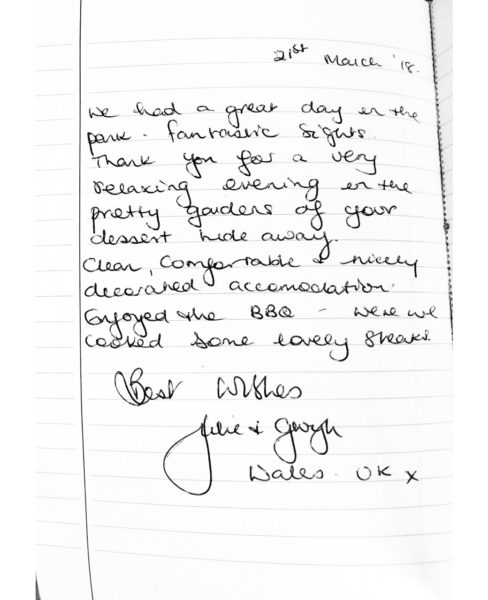 21st March '18.
We had a great day in the
park. fantastic sights.
Thank you for a very
relaxing evening in the
pretty gardens of your
dessert hide away.
Clean, Comfortable & nicely
decorated accomodation.
Enjoyed the BBQ – were we
cooked some lovely steaks.
Best Wishes
Julie &
Wales. UK x